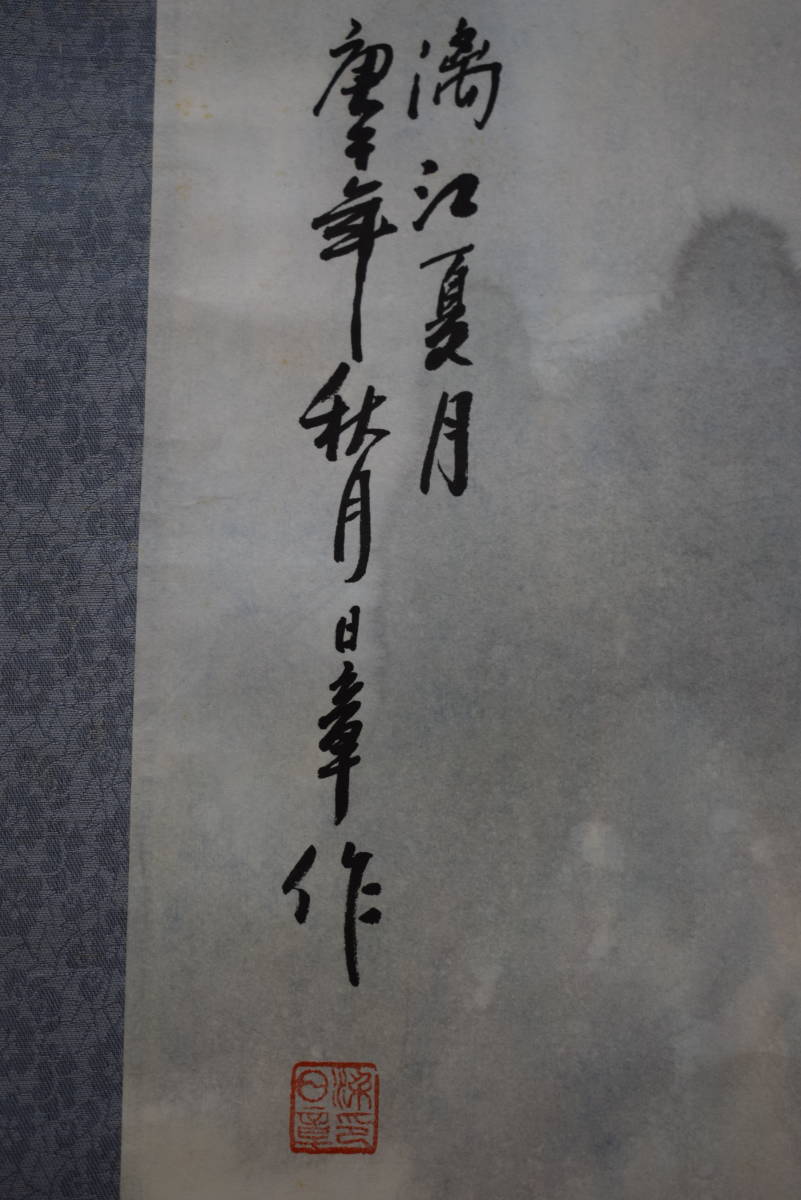 漓江夏月
庚午年秋月日章作